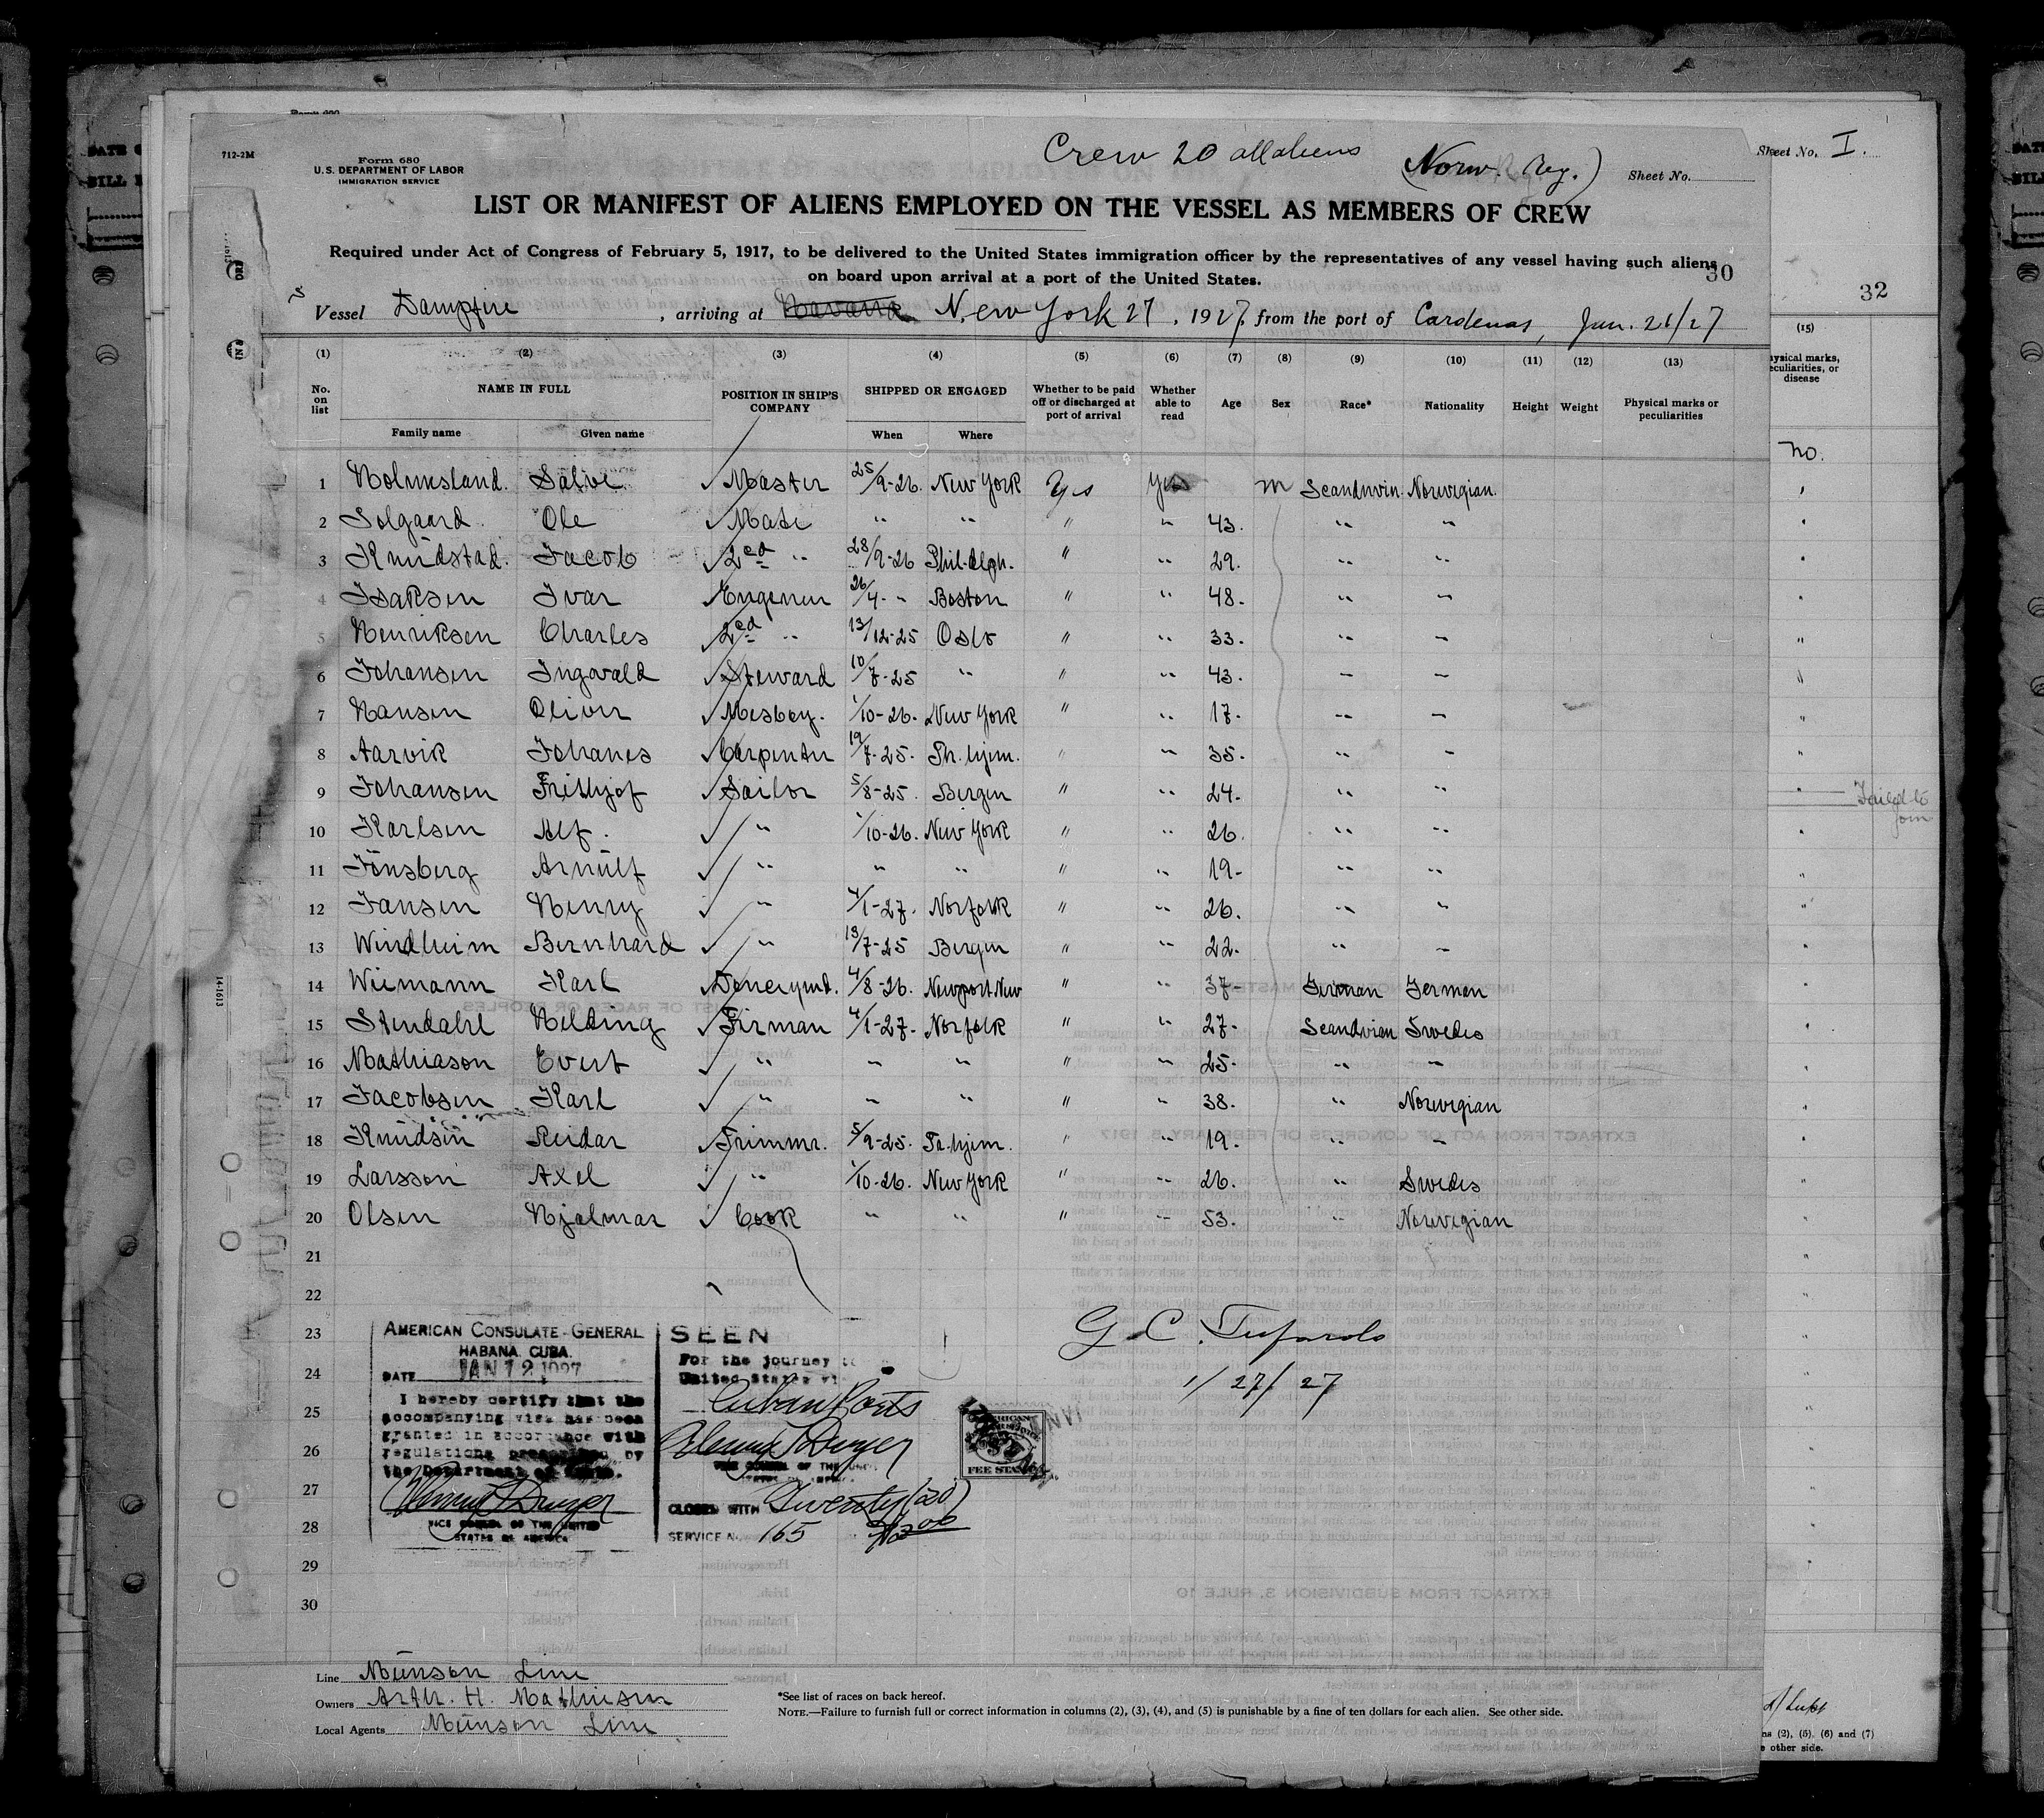 712-2M
Form 680
U. S. DEPARTMENT OF LABOR
IMMIGRATION SERVICE
Crew 20 all aliens (Norw. Reg.)
Sheet No.
Sheet No. I.
LIST OR MANIFEST OF ALIENS EMPLOYED ON THE VESSEL AS MEMBERS OF CREW
Required under Act of Congress of February 5, 1917, to be delivered to the United States immigration officer by the representatives of any vessel having such aliens
on board upon arrival at a port of the United States.
30
32
S Vessel Dampfire, arriving at Havana New York 27, 1927, from the port of Cardenas, Jan. 21/27
(1) (2) (3) (4) (5) (6) (7) (8) (9) (10) (11) (12) (13) (15)
No. on list NAME IN FULL Family name Given name POSITION IN SHIP'S COMPANY SHIPPED OR ENGAGED When Where Whether to be paid off or discharged at port of arrival Whether able to read Age Sex Race* Nationality Height Weight Physical marks or peculiarities
ysical marks, eculiarities, or disease
no.
1 Holmesland. Salve. Master 25/9-26. New York Yes Yes m Scandnvin. Norwegian.
2 Solgaard. Ole Mate " " " " 43. " "
3 Knüdstad. Jacob 2ed " 28/9-26 Phil.delph. " " 29. " "
4 Isaksen Ivar Engeneer 26/4- " Boston " " 48. " "
5 Henriksen Charles 2ed " 13/12-25 Oslo " " 33. " "
6 Johansen Ingvald Steward 10/7-25 " " " 43. " "
7 Hansen Oliver Mesboy. 1/10-26. New York " " 17. " "
8 Aarvik Johanes Carpenter 19/7-25. Th.hjem. " " 35. " "
9 Johansen Frithjof Sailor 5/8-25. Bergen " " 24. " "
Failed to join
10 Karlsen Alf. " 1/10-26. New York " " 26. " "
11 Jönsberg Arnülf " " " " " 19- " "
12 Jansen Henry " 4/1-27. Norfolk " " 26. " "
13 Windheim Bernhard " 13/7-25 Bergen " " 22. " "
14 Wiemann Karl Donerymd. 4/8-26. Newport New " " 37- German German
15 Stendahl Helding Firman 4/1-27. Norfolk " " 27- Scandvian Swedes
16 Mathiason Evert " " " " " 25- " "
17 Jacobsen Karl " " " " " 38. " Norwegian
18 Knüdsen Reidar Trimmr. 5/9-25. To.hjem. " " 19. " "
19 Larsson Axel " 1/10-26. New York " " 26. " Swedes
20 Olsen Hjalmar Cook " " " " 53. " Norwegian
21
22
23
24
25
26
27
28
29
30
AMERICAN CONSULATE-GENERAL
HABANA, CUBA.
DATE JAN 12 1927
I hereby certify that the
accompanying visa has been
granted in accordance with
regulations prescribed by
the Department of State.
VICE CONSUL OF THE UNITED
STATES OF AMERICA
SEEN
For the journey to
United States vi
Cuban Ports
VICE CONSUL OF THE UNITED
CLOSED WITH Twenty (20)
SERVICE No. 165
FEE STAMP
1/27/27
Line Münson Line
Owners Arth. H. Mathiesen
Local Agents Münson Line
*See list of races on back hereof.
NOTE.—Failure to furnish full or correct information in columns (2), (3), (4), and (5) is punishable by a fine of ten dollars for each alien. See other side.
ns (2), (5), (6) and (7)
e other side.
14-1613